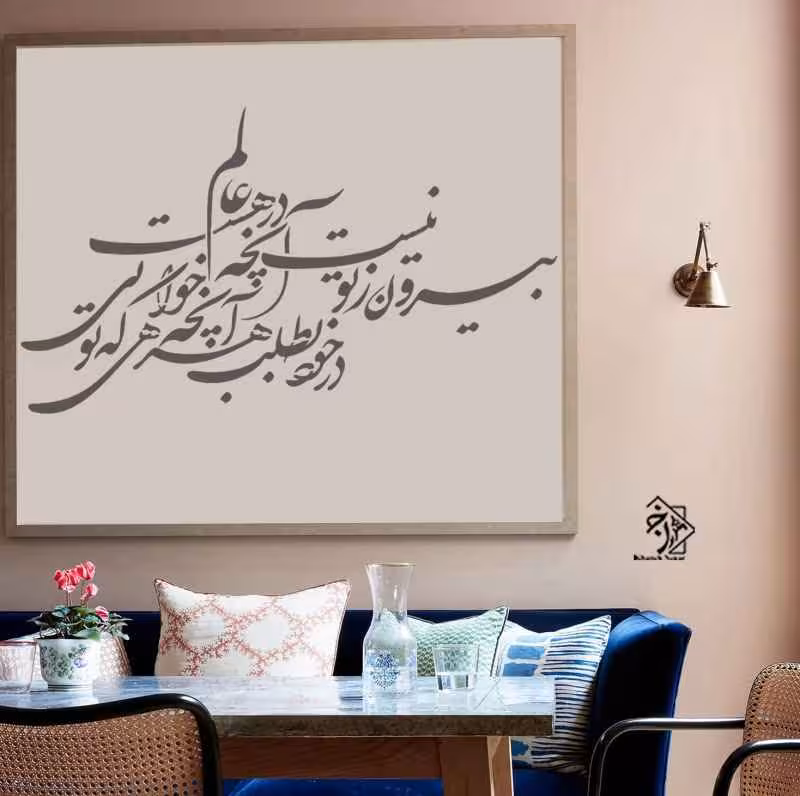 بیرون ز تو نیست آنچه در عالم هست
در خود بطلب هر آنچه خواهی که تویی